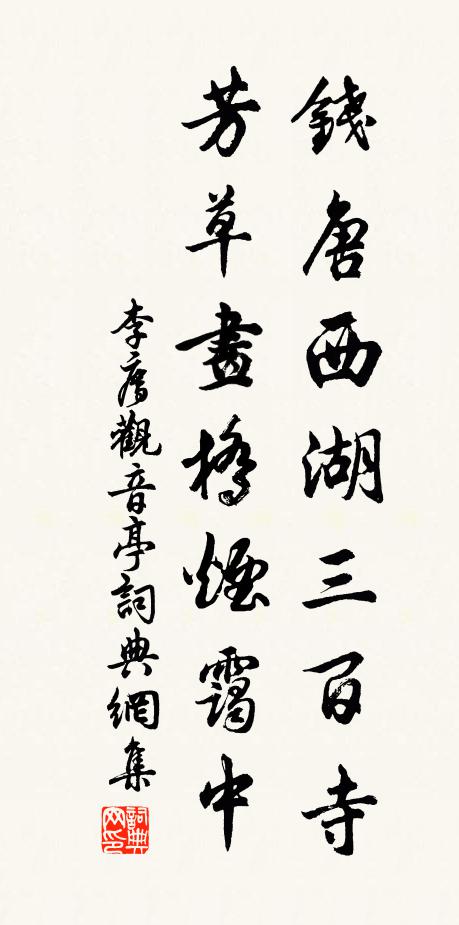 錢唐西湖三百寺
芳草畫橋煙靄中
李觀音亭詞典網集
詞典网印